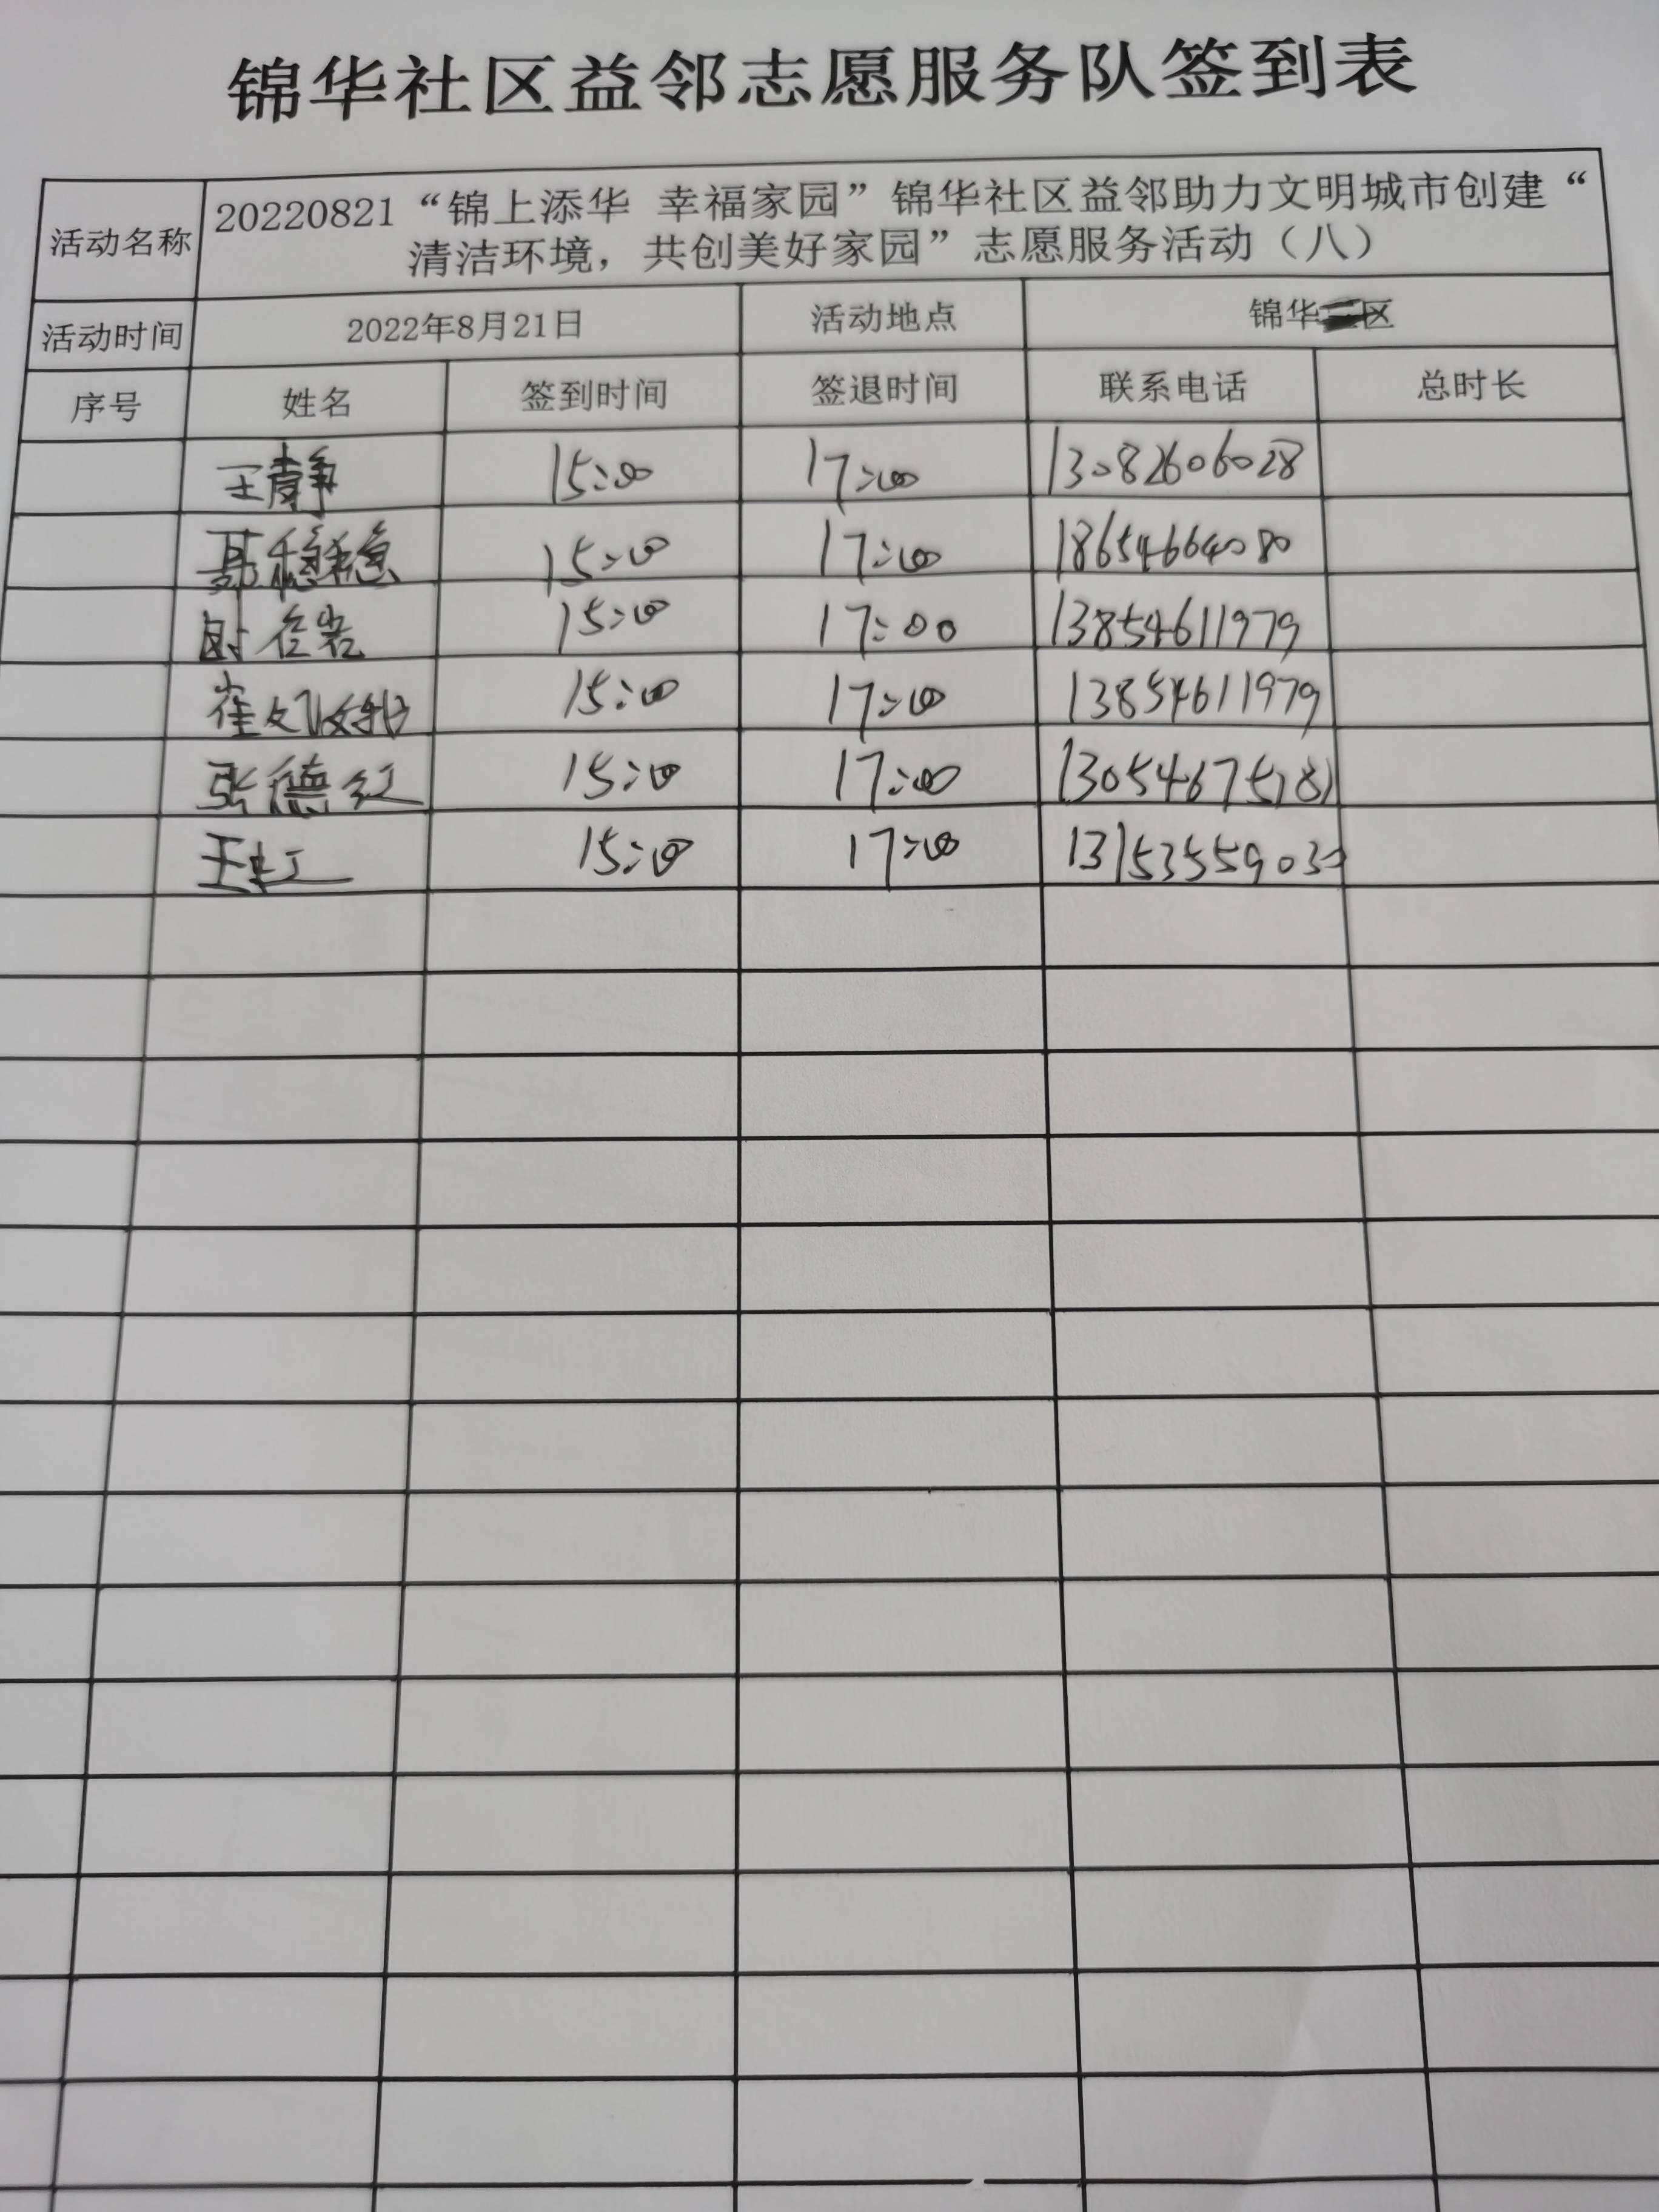 锦华社区益邻志愿服务队签到表
活动名称 20220821“锦上添华 幸福家园”锦华社区益邻助力文明城市创建“
清洁环境，共创美好家园”志愿服务活动（八）
活动时间 2022年8月21日 活动地点 锦华区
序号 姓名 签到时间 签退时间 联系电话 总时长
王静 15:00 17:00 13082606028
稳稳 15:00 17:00 18654664080
15:00 17:00 13854611979
崔 15:00 17:00 13854611979
张德红 15:00 17:00 13054675181
王虹 15:00 17:00